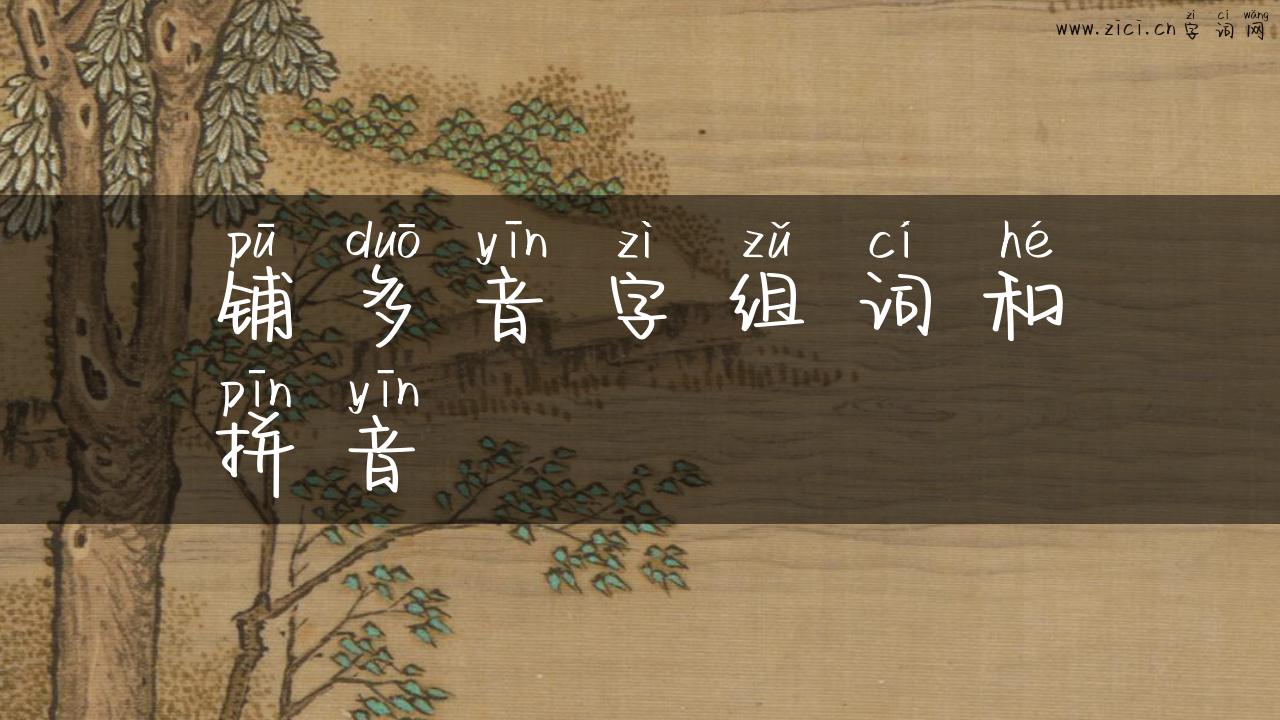 zì cí wǎng
www.zici.cn 字词网
pū duō yīn zì zǔ cí hé
铺多音字组词和
pīn yīn
拼音